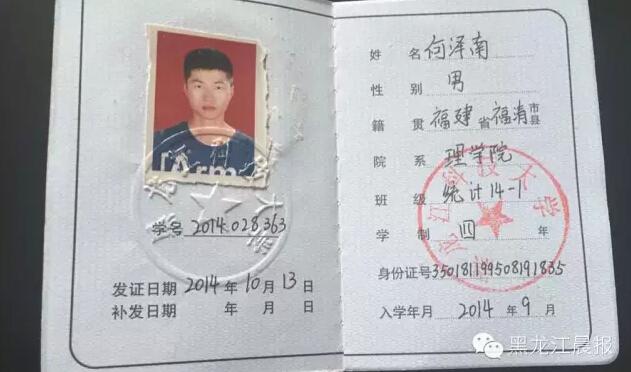 Arm
学号 2014.028363
发证日期 2014年10月13日
补发日期 年 月 日
姓名 何泽南
性别 男
籍贯 福建省福清市县
院系 理学院
班级 统计14-1
学制 四年
身份证号350181199508191835
入学年月 2014年9月
黑龙江晨报